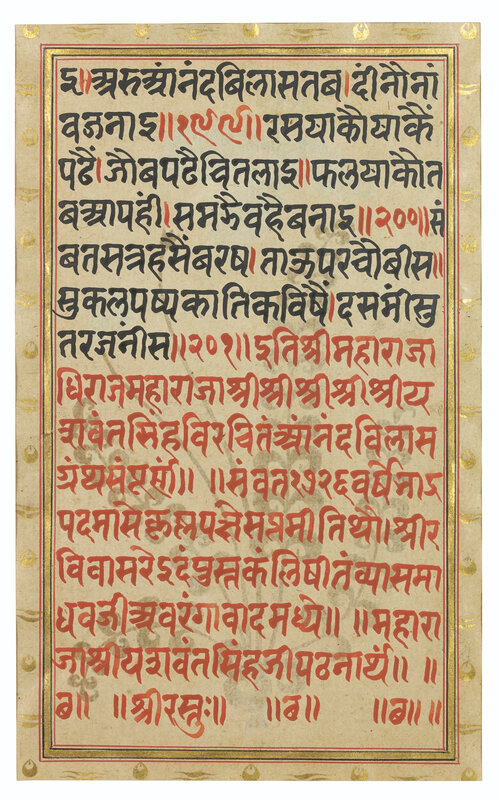 इ॥अरुआंनंदबिलासतब।दीनौनां
वजनाइ॥१९९॥रसयाकौयाकैं
पढैं।जौबपढैचितलाइ॥फलयाकौत
बआपहीं।समझैवहैबनाइ॥२००॥सं
बतसत्रहसैंबरष।ताऊपरचौबीस॥
सुकलपष्यकातिकविषैं।दसमींसु
तरजनीस॥२०१॥इतिश्रीमहाराजा
धिराजमहाराजाश्रीश्रीश्रीश्रीश्रीय
शवंतसिंहविरचितंआनंदविलास
ग्रंथसंपूर्ण॥ ॥संवत१७२६वर्षेभाऽ
पदमासेशुक्लपक्षेसप्तमीतिथौ॥श्रीर
विवासरेइदंपुस्तकंलिषीतंव्यासमा
धवजीअवरंगावादमध्ये॥ ॥महारा
जाश्रीयशवंतसिंहजीपठनार्थं॥ ॥
ब॥ ॥श्रीरस्तुः॥ ॥ब॥ ॥ब॥ ॥